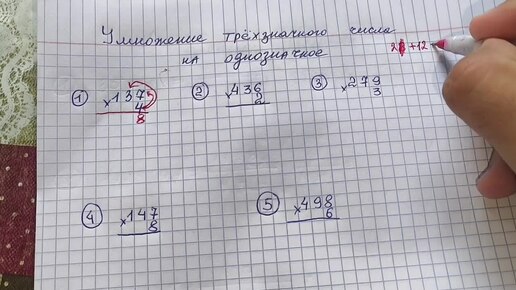 Умножение трёхзначного числа
на однозначное
28 + 12
① ×137
4
8
② ×436
2
③ ×279
3
④ ×147
8
⑤ ×498
6